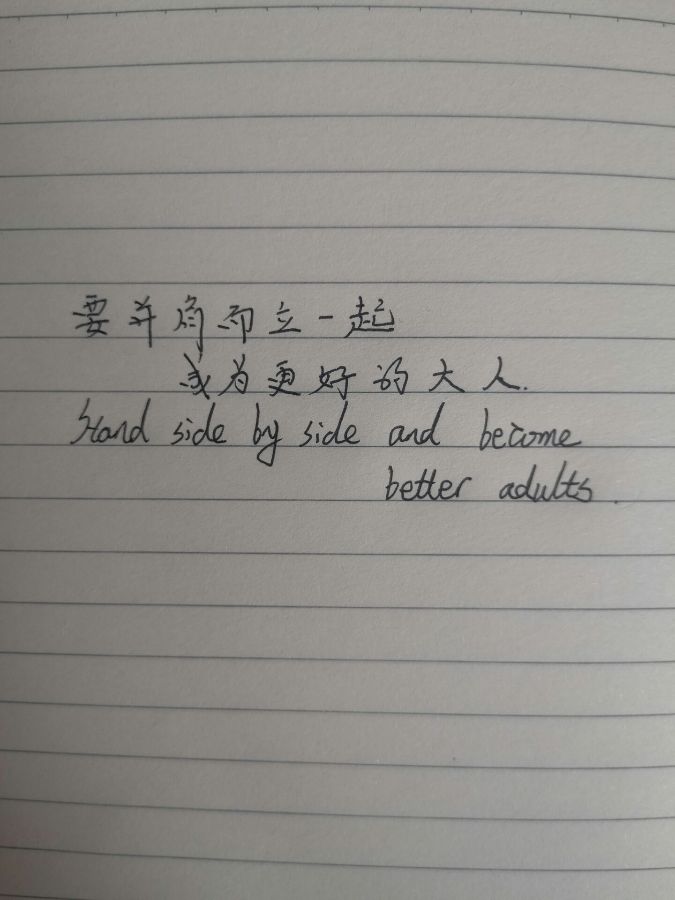 要并肩而立一起
成为更好的大人.
Stand side by side and become
better adults.